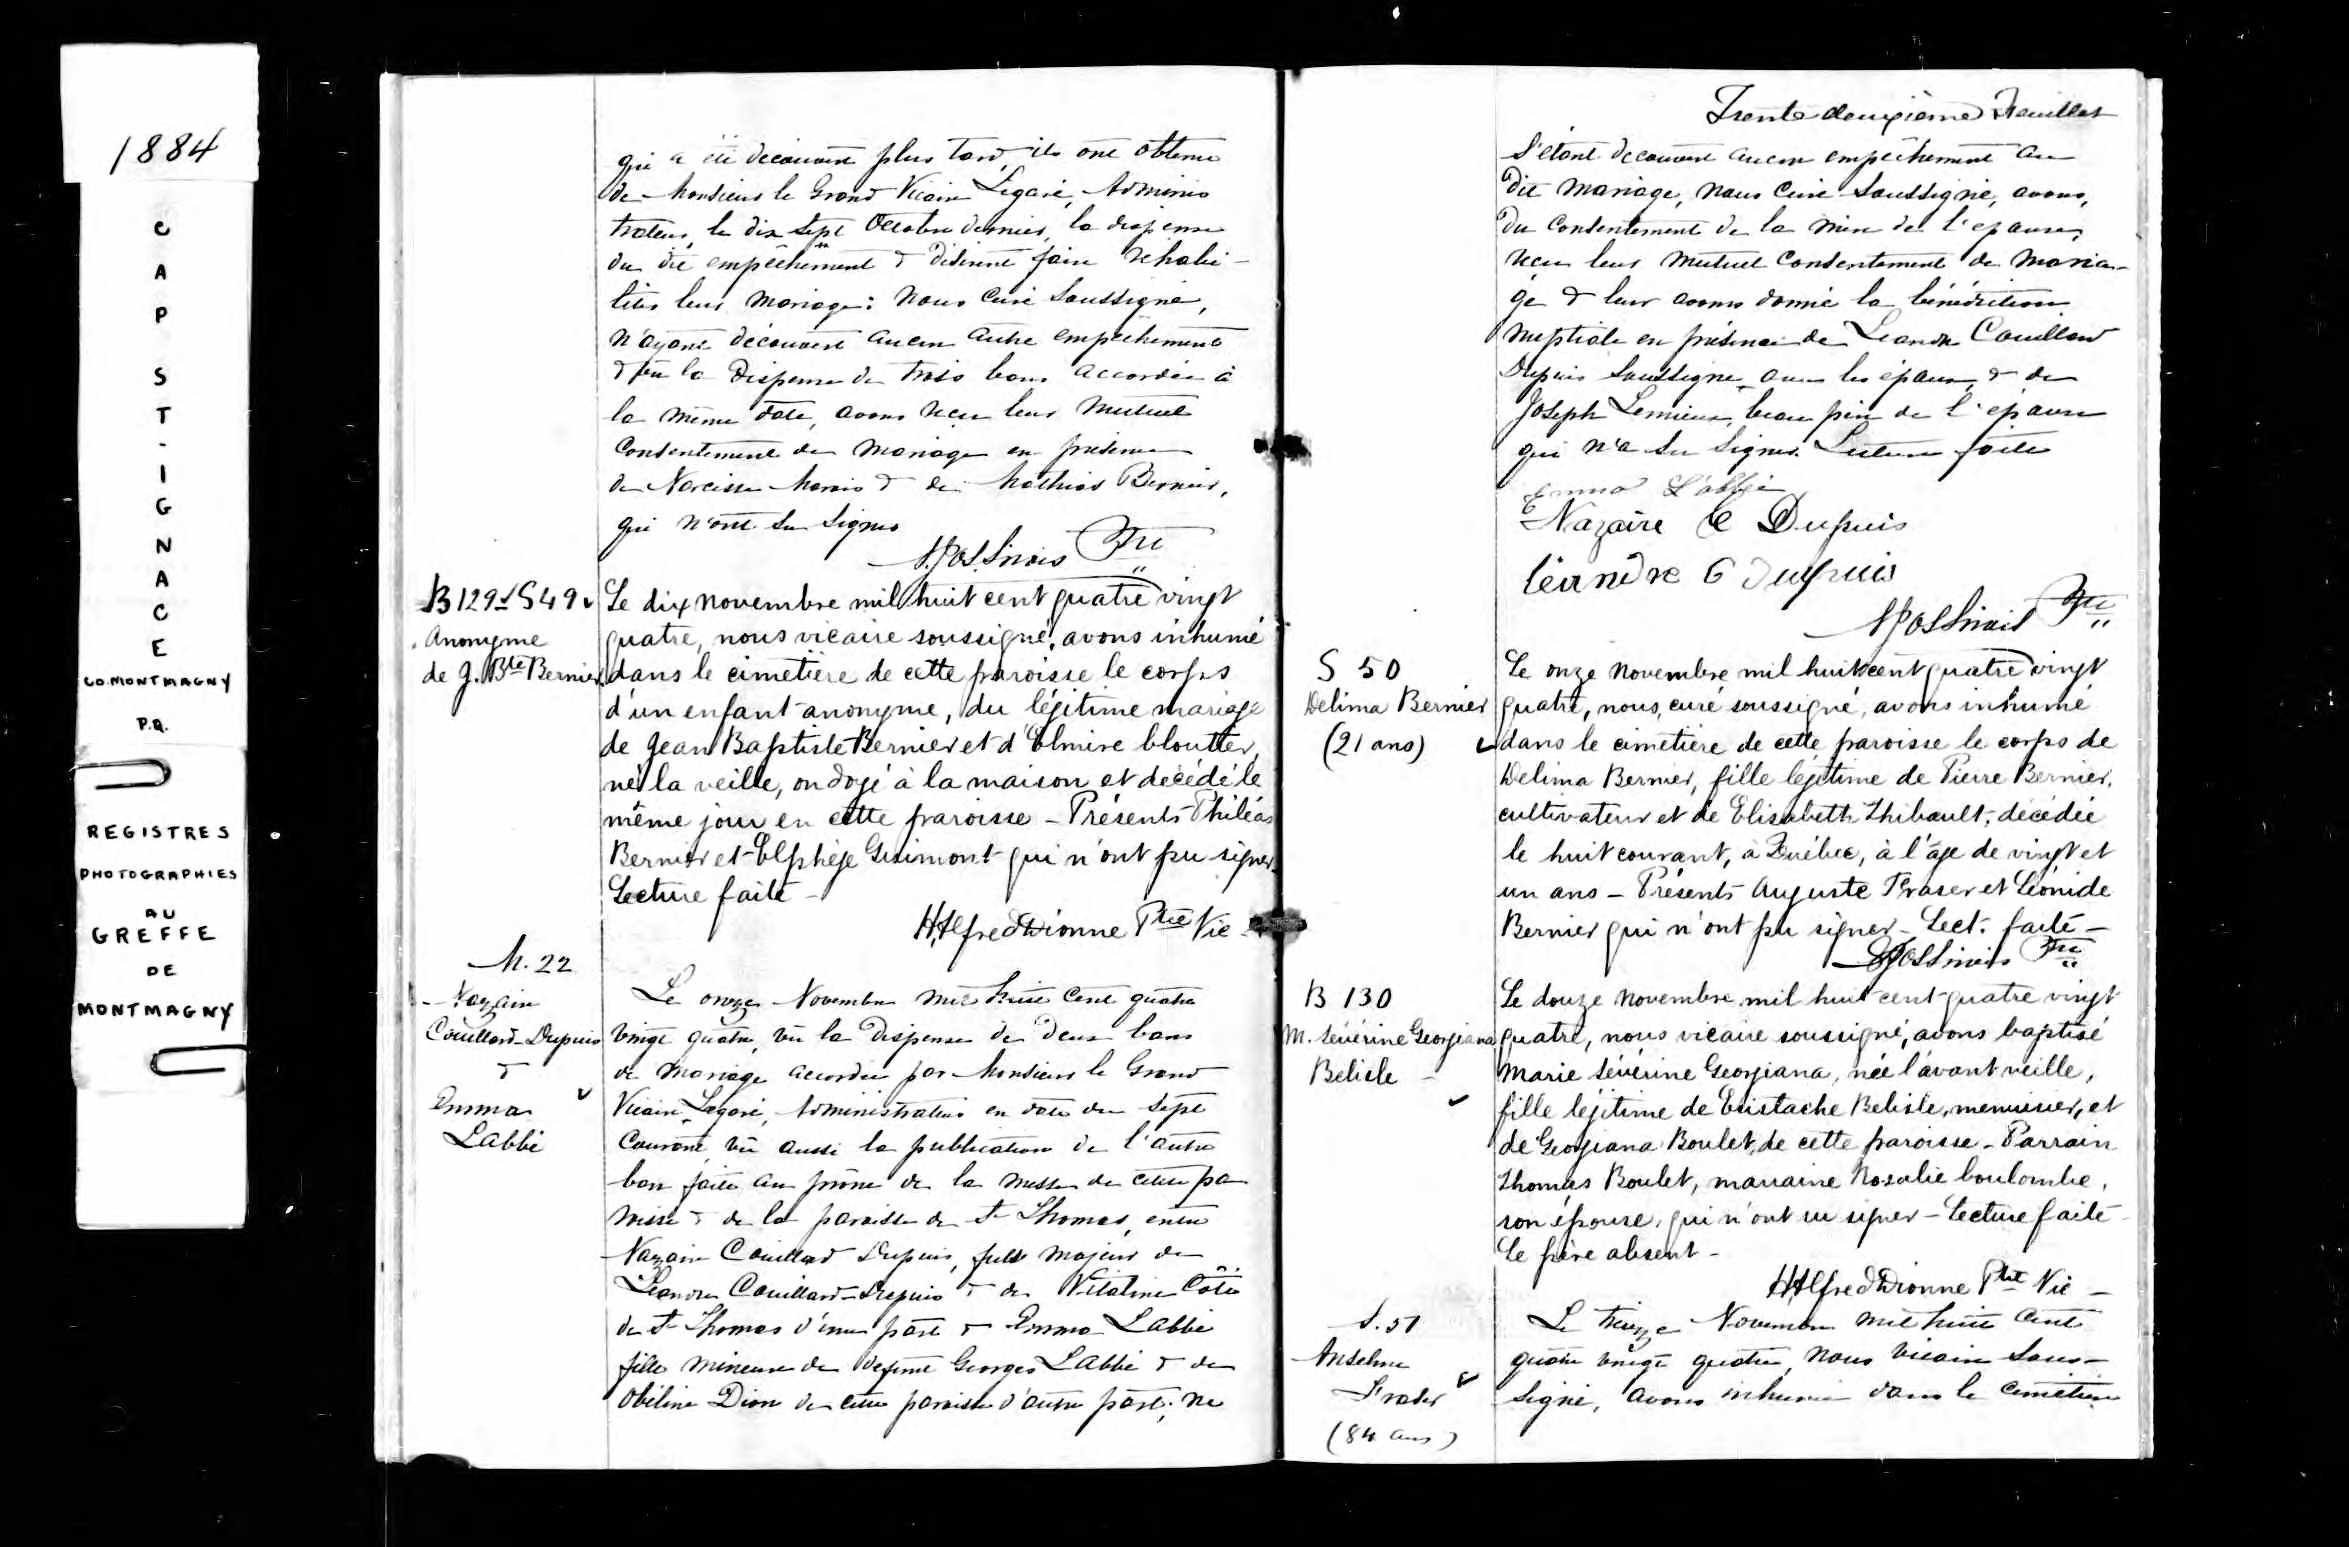 1884
C
A
P
S
T
-
I
G
N
A
C
E
CO. MONTMAGNY
P.Q.
REGISTRES
PHOTOGRAPHIES
AU
GREFFE
DE
MONTMAGNY
qui a été découvert plus tard, ils ont obtenu
de Monsieur le Grand Vicaire Légaré, Adminis
trateur, le dix sept Octobre dernier, la dispense
du dit empêchement & désirent faire réhabi-
liter leur mariage: Nous Curé Soussigné,
n'ayant découvert aucun autre empêchement
& vu la Dispense de trois bans accordée à
la même date, avons reçu leur mutuel
consentement de mariage en présence
de Narcisse Morin & de Mathias Bernier,
qui n'ont su signer
Ptre
B 129 & S 49
Anonyme
de J. Bte Bernier
Le dix novembre mil huit cent quatre vingt
quatre, nous vicaire soussigné, avons inhumé
dans le cimetière de cette paroisse le corps
d'un enfant anonyme, du légitime mariage
de Jean Baptiste Bernier et d'Elmire Cloutier,
né la veille, ondoyé à la maison et décédé le
même jour en cette paroisse - Présents Philéas
Bernier et Elphège Guimont qui n'ont pu signer.
Lecture faite -
H Alfred Dionne Ptre Vic -
M. 22
Nazaire
Couillard-Dupuis
&
Emma
Labbé
Le onze Novembre mil huit cent quatre
vingt quatre, vu la Dispense de deux bans
de mariage accordée par Monsieur le Grand
Vicaire Légaré, Administrateur en date du sept
courant, vu aussi la publication de l'autre
ban faite au prône de la messe de cette pa
roisse & de la paroisse de St Thomas, entre
Nazaire Couillard Dupuis, fils majeur de
Léandre Couillard-Dupuis & de Vitaline Côté
de St Thomas d'une part & Emma Labbé
fille mineure de defunt Georges Labbé & de
Obéline Dion de cette paroisse d'autre part; ne
Trente deuxième Feuillet
s'étant découvert aucun empêchement au
dit mariage, Nous Curé Soussigné, avons,
du consentement de la mère de l'épouse,
reçu leur mutuel consentement de maria-
ge & leur avons donné la bénédiction
nuptiale en présence de Léandre Couillard
Dupuis Soussigné avec les époux, & de
Joseph Lemieux, beau père de l'épouse
qui n'a su signer. Lecture faite
Emma L'abbé
Nazaire C Dupuis
léandre C Dupuis
Ptre
S 50
Delima Bernier
(21 ans)
Le onze novembre mil huit cent quatre vingt
quatre, nous, curé soussigné, avons inhumé
dans le cimetière de cette paroisse le corps de
Delima Bernier, fille légitime de Pierre Bernier,
cultivateur et de Elisabeth Thibault, décédée
le huit courant, à Québec, à l'âge de vingt et
un ans - Présents Auguste Fraser et Léonide
Bernier qui n'ont pu signer - Lect. faite -
Ptre
B 130
M. Sévérine Georgiana
Belisle -
Le douze novembre mil huit cent quatre vingt
quatre, nous vicaire soussigné, avons baptisé
Marie Sévérine Georgiana, née l'avant veille,
fille légitime de Eustache Belisle, menuisier, et
de Georgiana Boulet, de cette paroisse - Parrain
Thomas Boulet, marraine Rosalie Coulombe,
son épouse, qui n'ont su signer - Lecture faite -
Le père absent -
H Alfred Dionne Ptre Vic -
S. 51
Anselme
Fraser
(84 ans)
Le treize Novembre mil huit cent
quatre vingt quatre, Nous Vicaire Sous-
signé, avons inhumé dans le cimetière